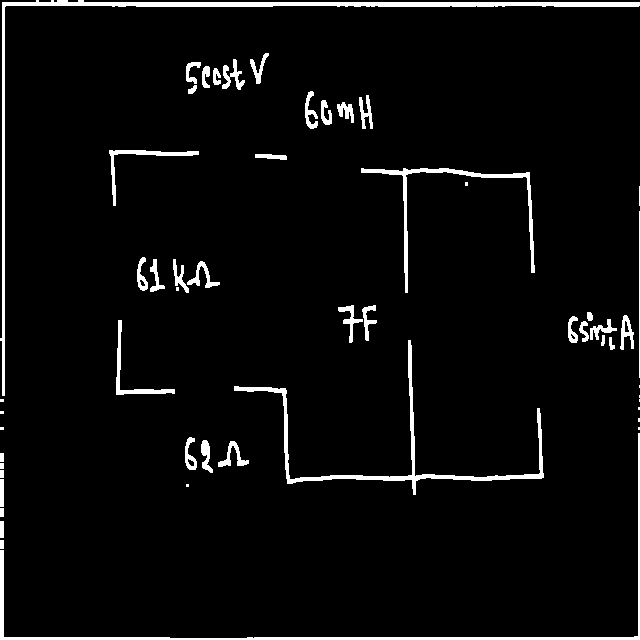 5cost V
60mH
61 kΩ
7F
6sint A
62 Ω